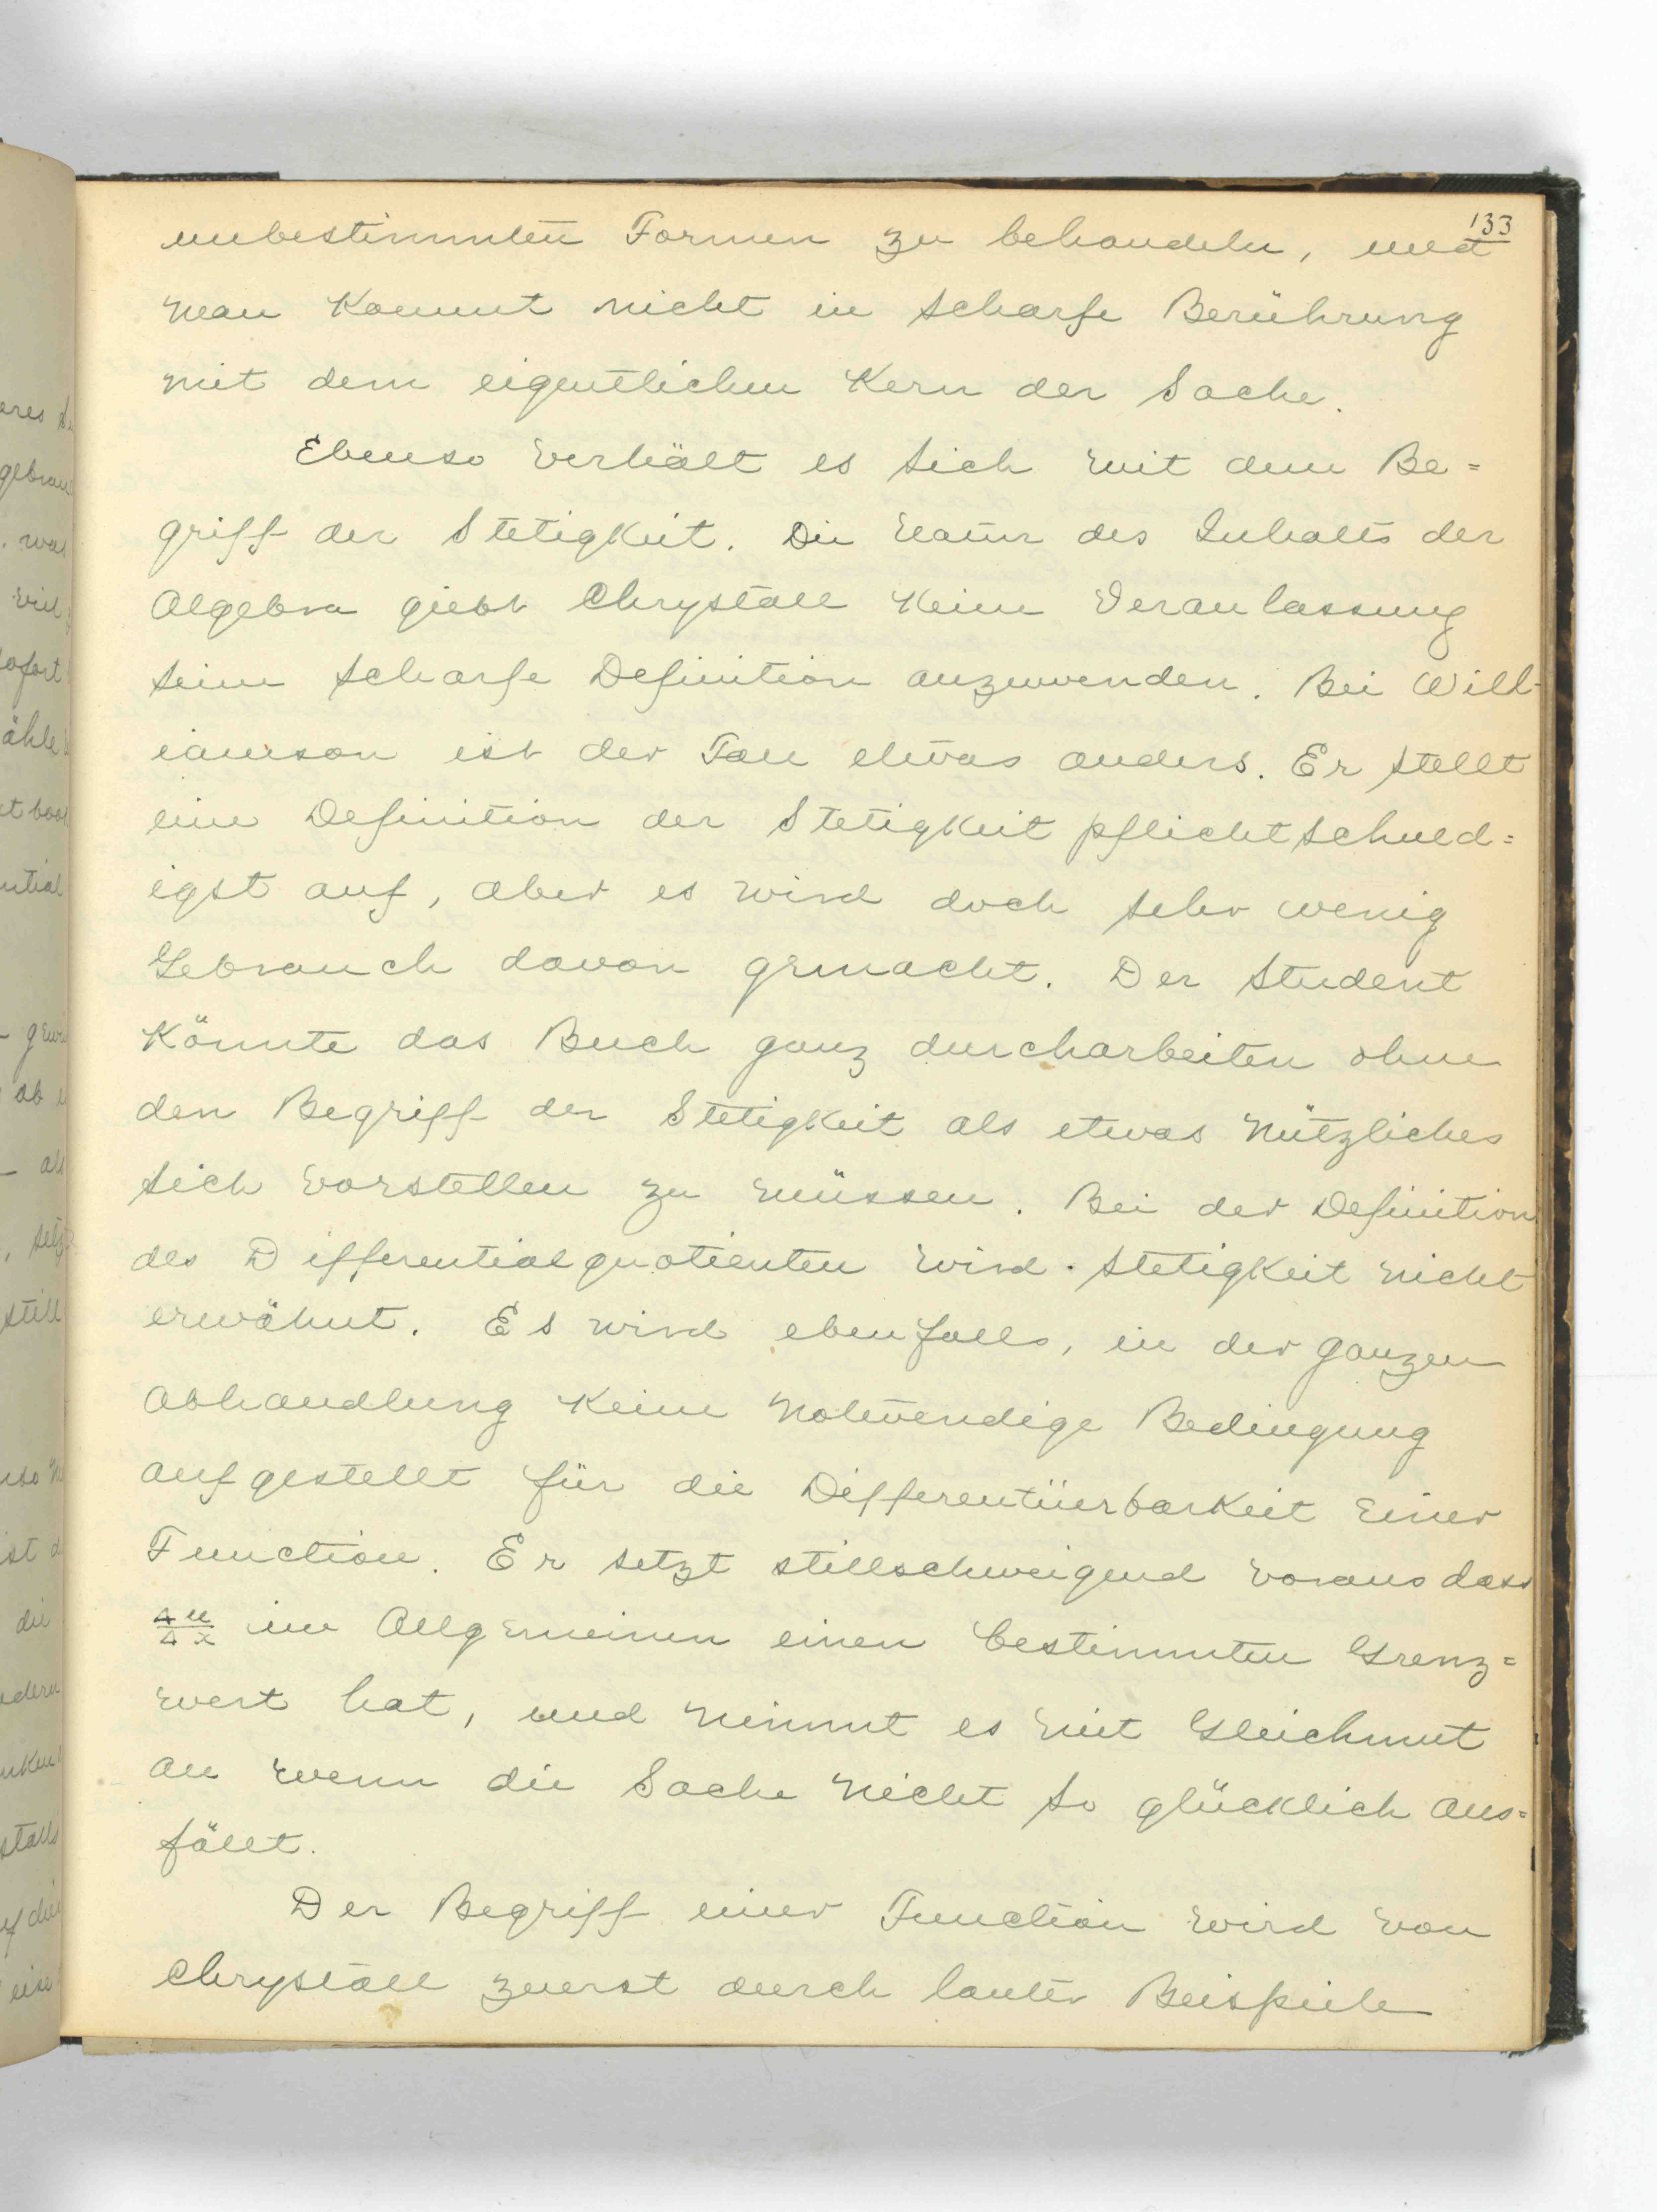 133
unbestimmten Formen zu behandeln, und
man kommt nicht in scharfe Berührung
mit dem eigentlichen Kern der Sache.
Ebenso verhält es sich mit dem Be=
griff der Stetigkeit. Die Natur des Inhalts der
Algebra giebt Chrystall keine Veranlassung
seine scharfe Definition anzuwenden. Bei Will-
iamson ist der Fall etwas anders. Er stellt
eine Definition der Stetigkeit pflichtschuld=
igst auf, aber es wird doch sehr wenig
Gebrauch davon gemacht. Der Student
könnte das Buch ganz durcharbeiten ohne
den Begriff der Stetigkeit als etwas nützliches
sich vorstellen zu müssen. Bei der Definition
des Differentialquotienten wird Stetigkeit nicht
erwähnt. Es wird ebenfalls, in der ganzen
Abhandlung keine notwendige Bedingung
aufgestellt für die Differentiierbarkeit einer
Function. Er setzt stillschweigend voraus dass
Δu/Δx im Allgemeinen einen bestimmten Grenz=
wert hat, und nimmt es mit Gleichmut
an wenn die Sache nicht so glücklich aus=
fällt.
Der Begriff einer Function wird von
Chrystall zuerst durch lauter Beispiele